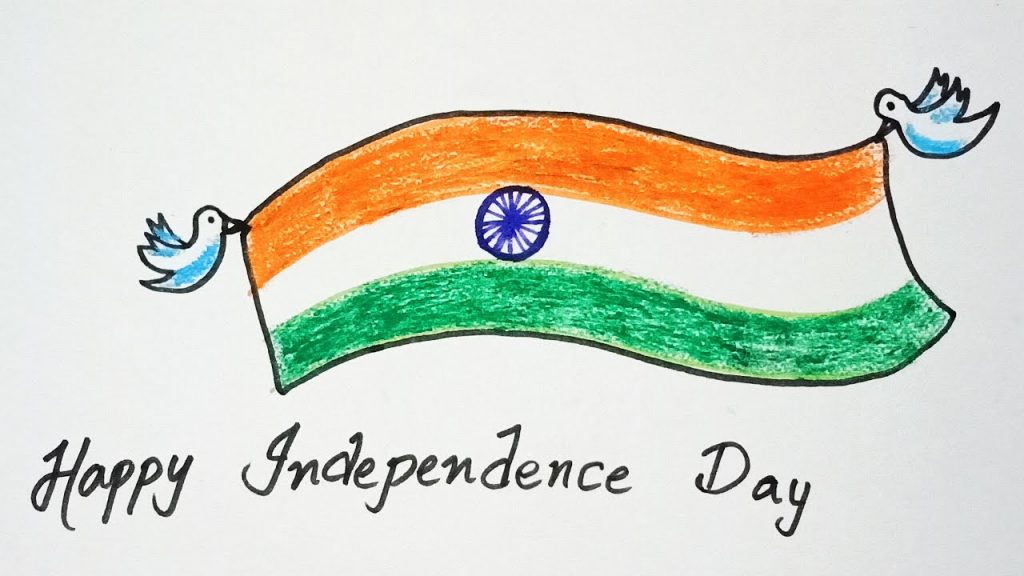 Happy Independence Day